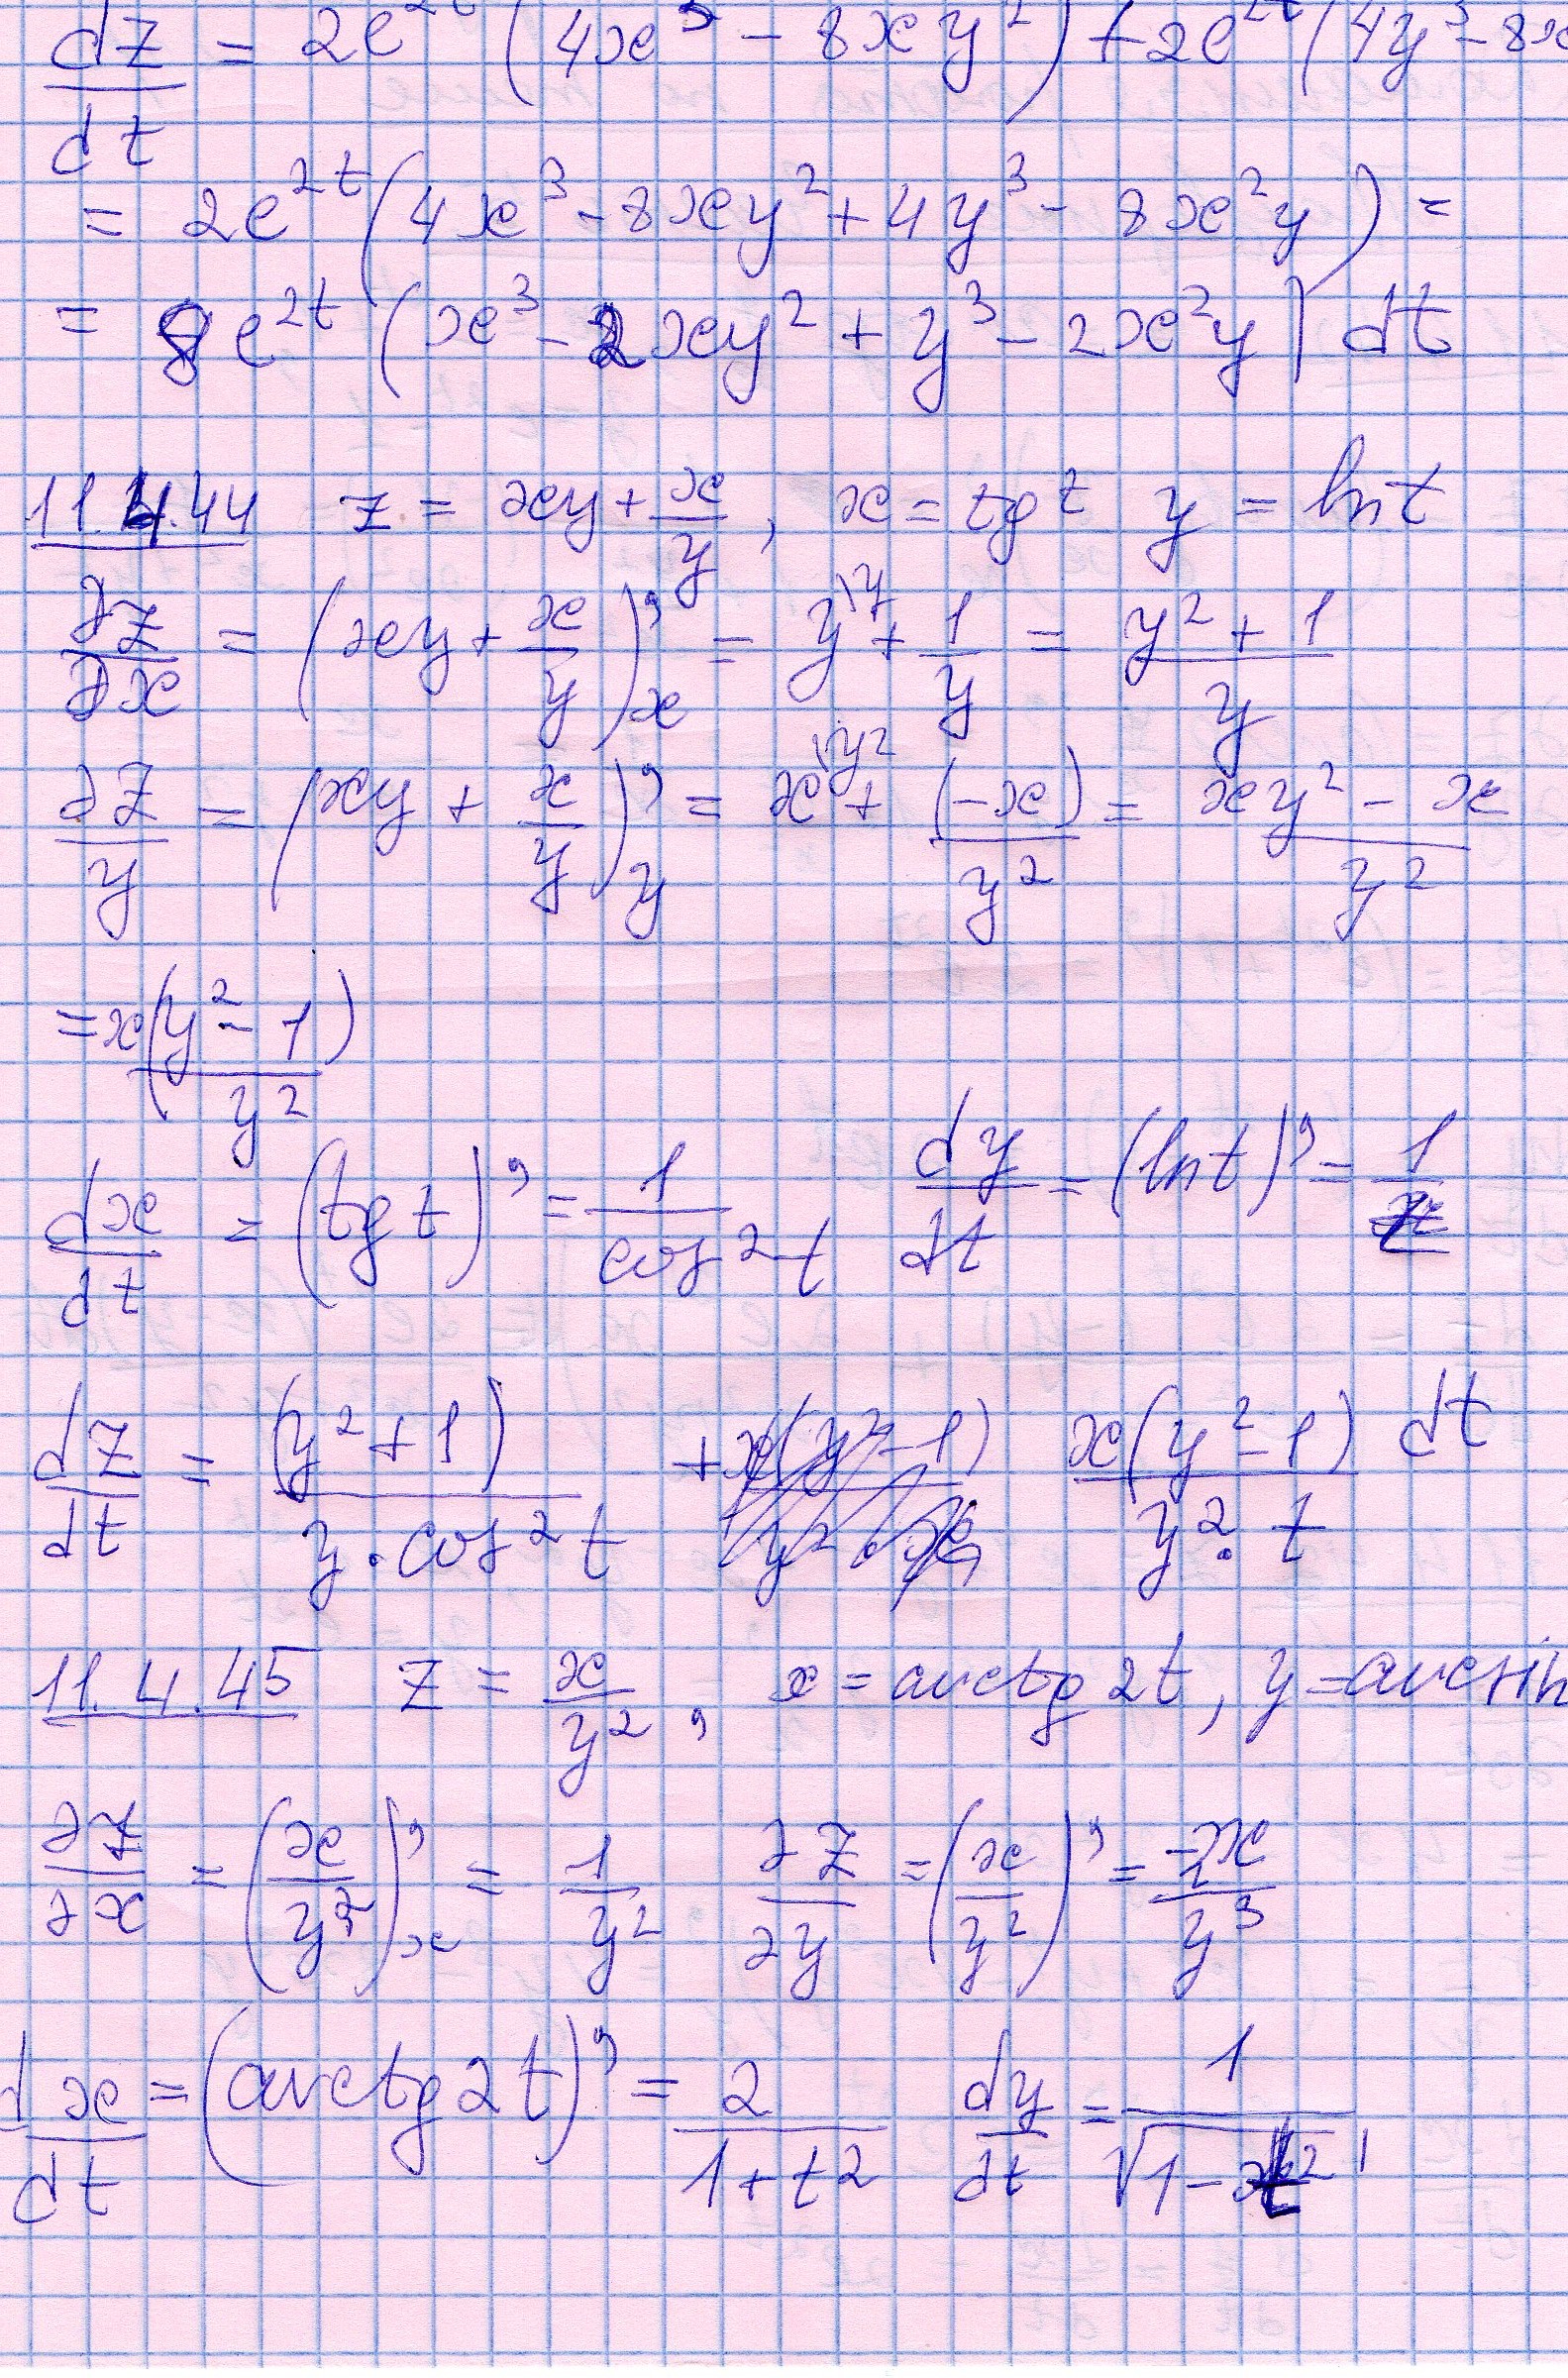 dz/dt = 2e^2t (4x^3 - 8xy^2) + 2e^2t (4y^3 - 8x
= 2e^2t (4x^3 - 8xy^2 + 4y^3 - 8x^2y) =
= 8e^2t (x^3 - 2xy^2 + y^3 - 2x^2y) dt
11.4.44 z = xy + x/y, x = tg t y = ln t
∂z/∂x = (xy + x/y)'x = y\y + 1/y = (y^2 + 1)/y
∂z/y = (xy + x/y)'y = x\y^2 + (-x)/y^2 = (xy^2 - x)/y^2
= x(y^2 - 1)/y^2
dx/dt = (tg t)' = 1/cos^2 t dy/dt = (ln t)' = 1/t
dz/dt = (y^2 + 1)/(y · cos^2 t) + x(y^2 - 1)/(y^2 · t) dt
11.4.45 z = x/y^2, x = arctg 2t, y = arcsin
∂z/∂x = (x/y^2)'x = 1/y^2 ∂z/∂y = (x/y^2)' = -2x/y^3
dx/dt = (arctg 2t)' = 2/(1 + t^2) dy/dt = 1/√(1 - t^2)